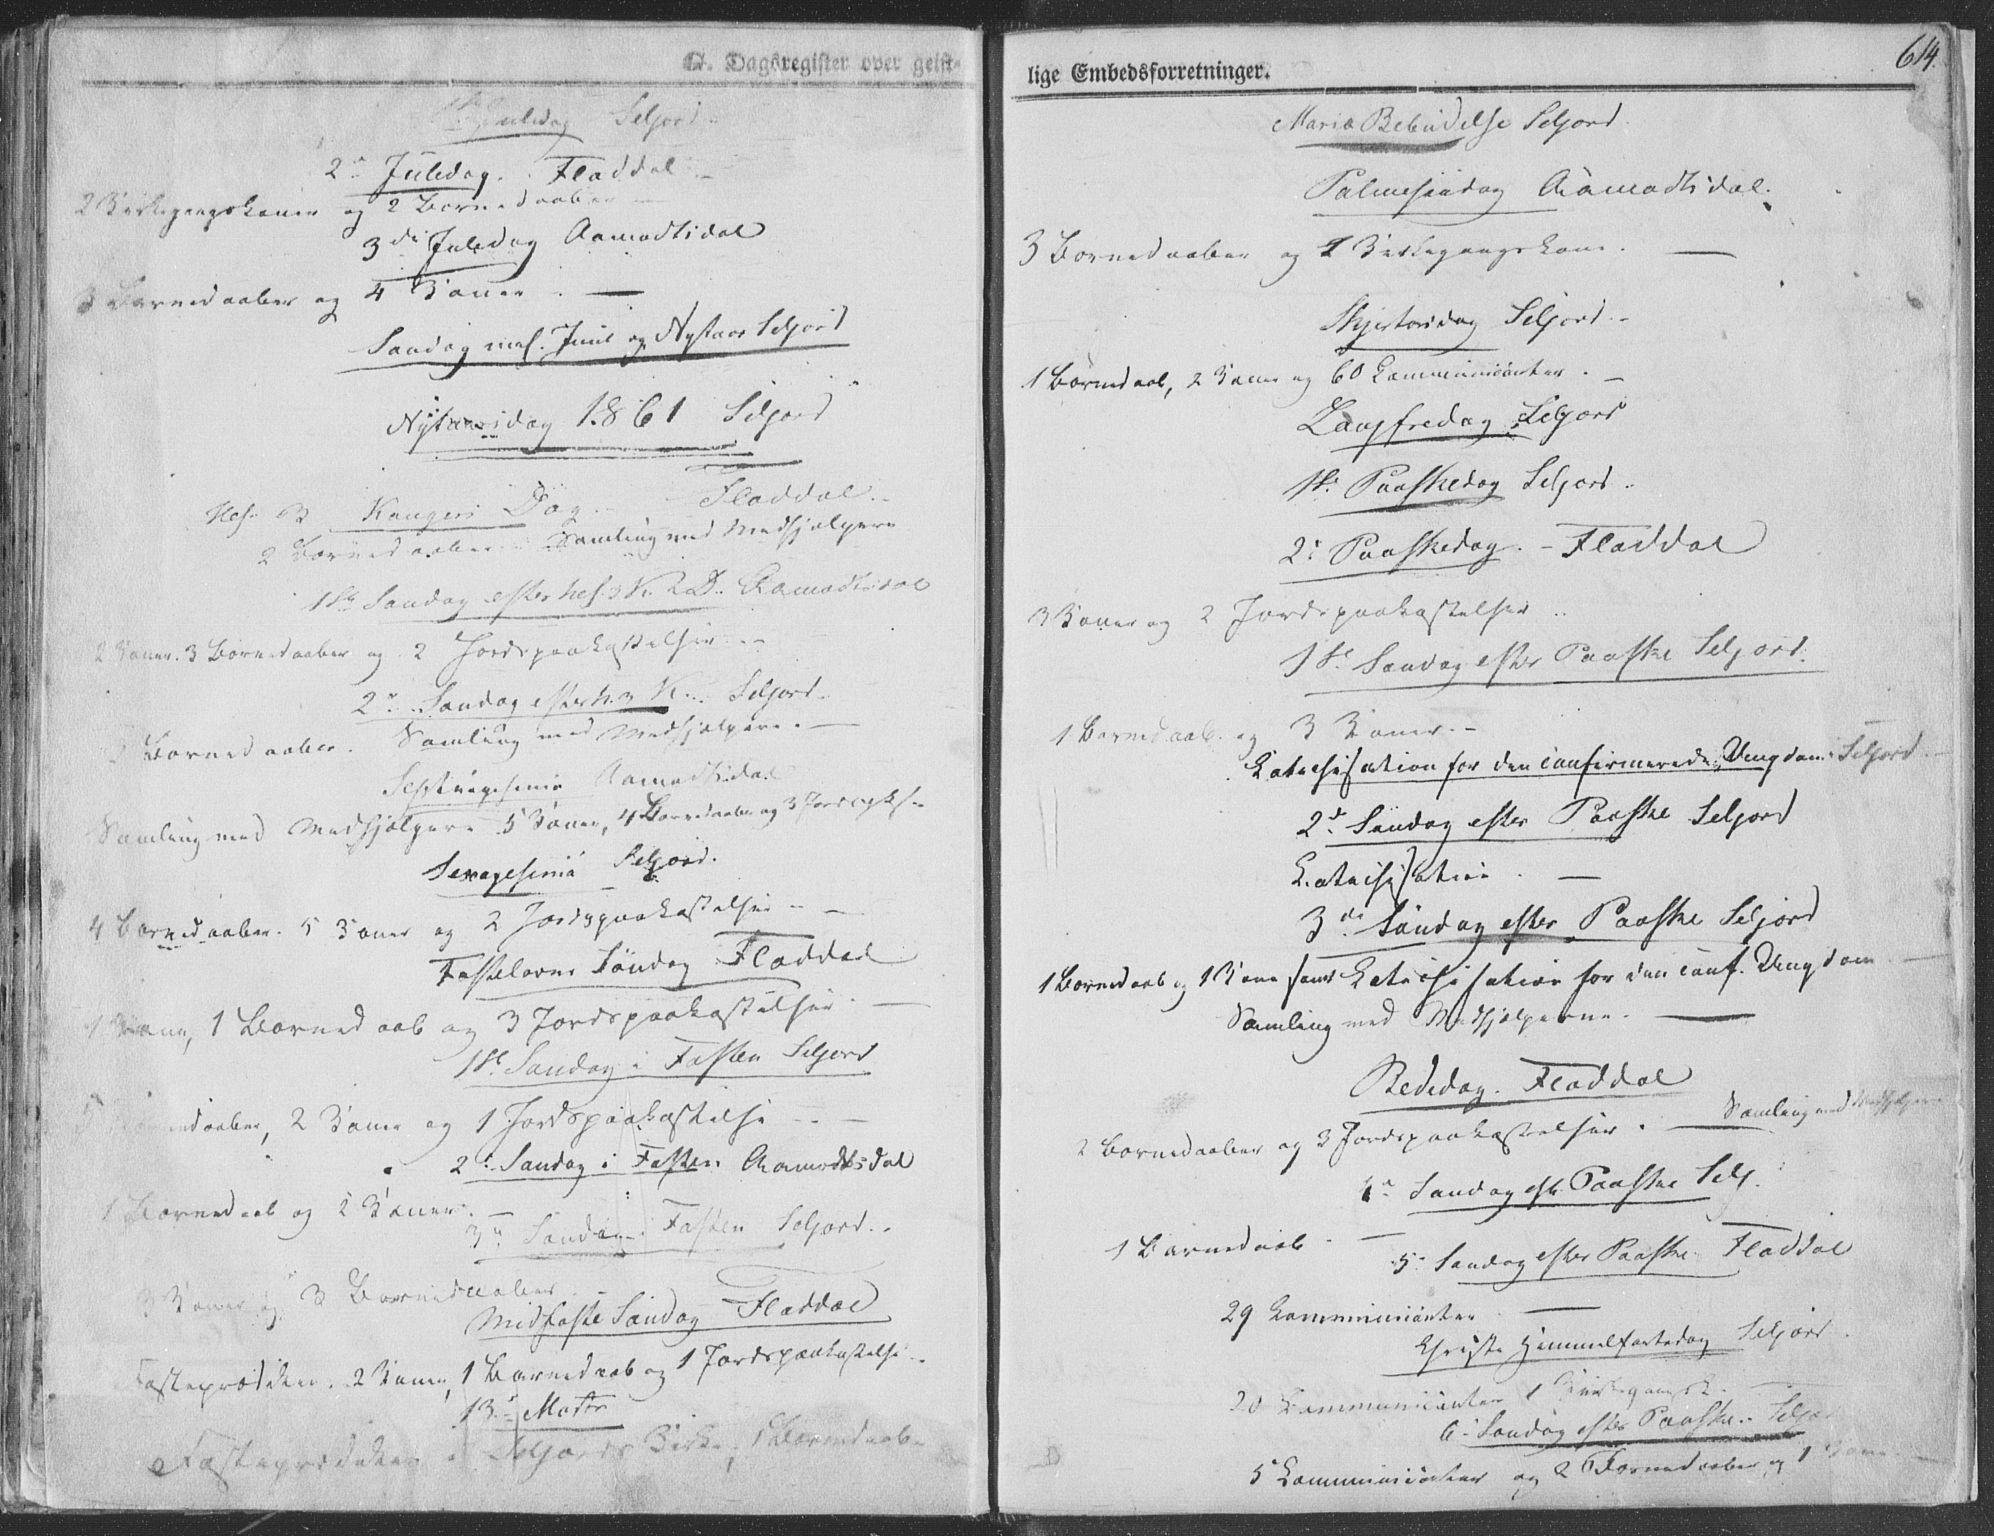 G. Dagsregister over geist-
1ste Juledag Seljord
2n Juledag. Fladdal
2 Kirkegangskoner og 2 Barnedaaber
3die Juledag Aamodtsdal
3 Barnedaaber og 4 Koner
Søndag mel. Juul og Nytaar Seljord
Nytaarsdag 1861 Seljord
Hel. 3 Kongers Dag. Fladdal
2 Barnedaaber. Samling med Medhjælperne
1ste Søndag efter hel. 3 K. D. Aamodtsdal
2 Koner. 3 Barnedaaber og 2 Jordspaakastelser
2n Søndag efter h. 3 K. Seljord
Barnedaaber. Samling med Medhjælperne
Septuagesima Aamodtsdal
Samling med Medhjælperne 5 Koner, 4 Barnedaaber og 3 Jordspks.
Sexagesima Seljord.
4 Barnedaaber. 5 Koner og 2 Jordspaakastelser
Fastelavns Søndag Fladdal
1 Kone, 1 Barnedaab og 3 Jordspaakastelser
1ste Søndag i Fasten Seljord
Barnedaaber, 2 Koner og 1 Jordspaakastelse
2n Søndag i Fasten Aamodtsdal
1 Barnedaab og 2 Koner.
3n Søndag i Fasten Seljord
3 Koner og 3 Barnedaaber
Midfaste Søndag Fladdal
Fasteprædiken. 2 Koner, 1 Barnedaab og 1 Jordspaakastelse
13n Marts
Fasteprædiken i Seljords Kirke, 1 Barnedaab
614.
lige Embedsforretninger.
Mariæ Bebudelse Seljord.
Palmesøndag Aamodtsdal.
3 Barnedaaber og 1 Kirkegangskone.
Skjertorsdag Seljord
1 Barnedaab, 2 Koner og 60 Communicanter
Langfredag Seljord
1ste Paaskedag Seljord
2n Paaskedag. Fladdal
3 Koner og 2 Jordspaakastelser
1ste Søndag efter Paaske Seljord.
1 Barnedaab og 3 Koner.
Catechisation for den confirmerede Ungdom Seljord
2n Søndag efter Paaske Seljord
Catechisation
3die Søndag efter Paaske Seljord
1 Barnedaab og 1 Kone samt Catechisation for den conf. Ungdom
Samling med Medhjælperne.
Bededag. Fladdal
2 Barnedaaber og 3 Jordspaakastelser. Samling med Medhjælperne
4n Søndag eft. Paaske Selj.
1 Barnedaab
5n Søndag efter Paaske Fladdal
29 Communicanter
Christi Himmelfartsdag Seljord
20 Communicanter 1 Kirkegangsk.
6n Søndag efter Paaske Seljord
5 Communicanter og 2 Barnedaaber og 1 Kone